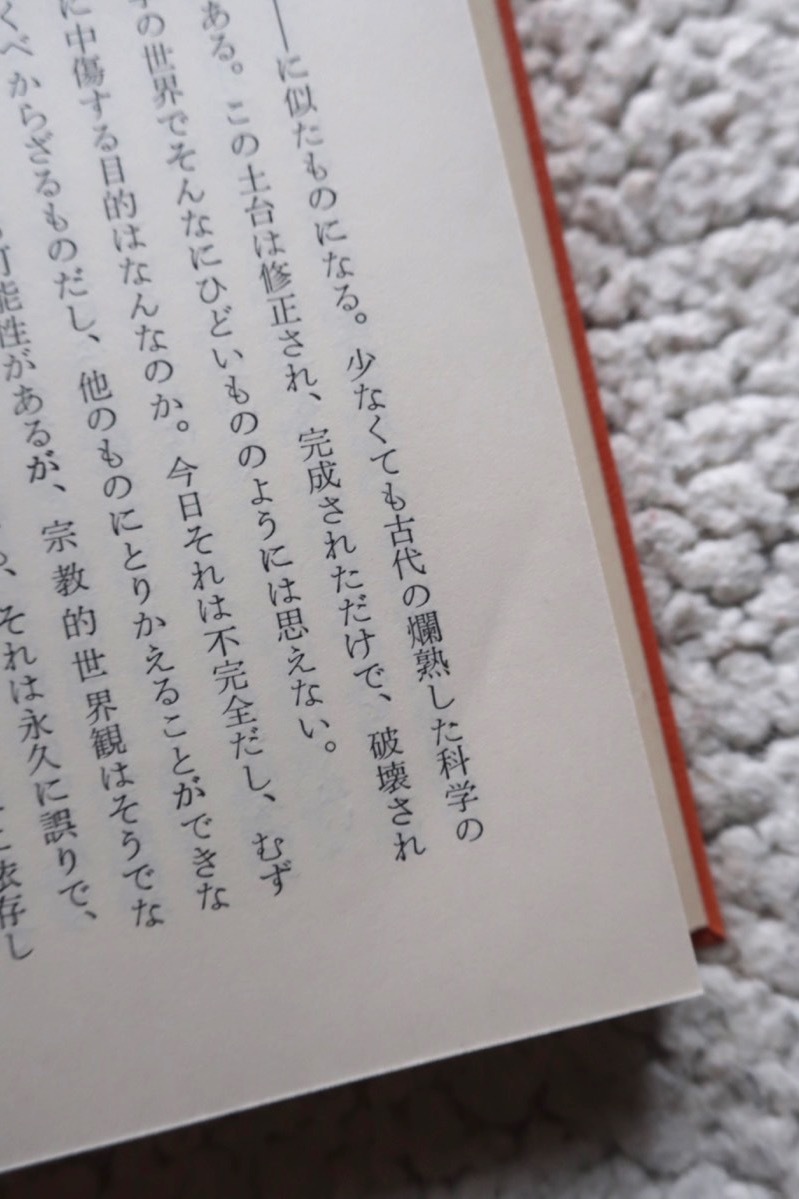 ――に似たものになる。少なくても古代の爛熟した科学の
ある。この土台は修正され、完成されただけで、破壊され
の世界でそんなにひどいもののようには思えない。
に中傷する目的はなんなのか。今日それは不完全だし、むず
くべからざるものだし、他のものにとりかえることができな
可能性があるが、宗教的世界観はそうでな
、それは永久に誤りで、
依存し